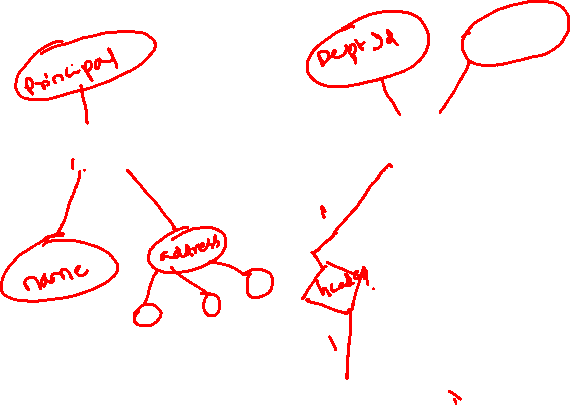 Principal
Dept Id
name
address
1
1